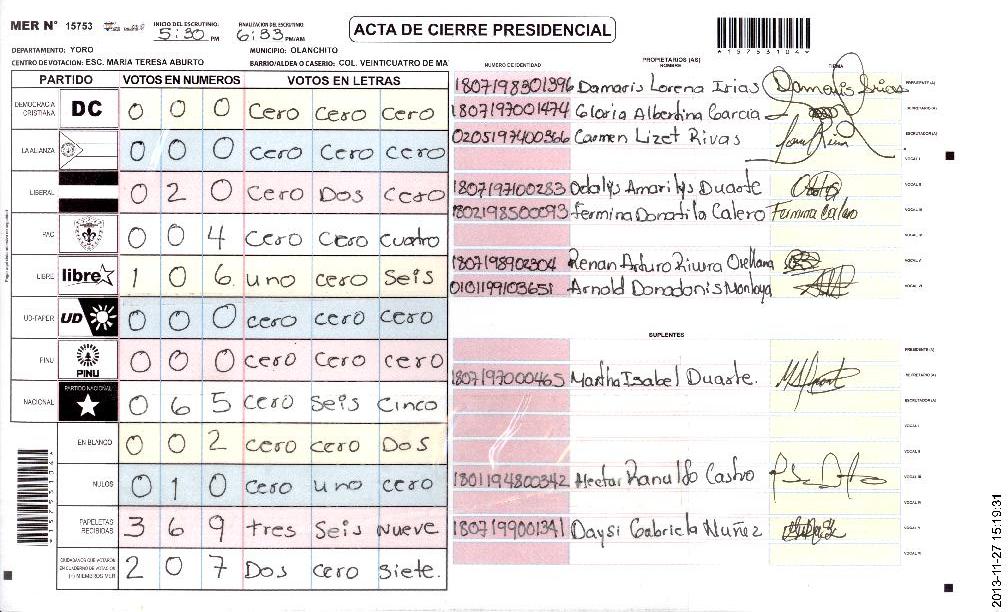 MER N° 15753
INICIO DEL ESCRUTINIO: 5:30 PM
FINALIZACION DEL ESCRUTINIO: 6:33 PM/AM
ACTA DE CIERRE PRESIDENCIAL
15753104
DEPARTAMENTO: YORO
MUNICIPIO: OLANCHITO
CENTRO DE VOTACION: ESC. MARIA TERESA ABURTO
BARRIO/ALDEA O CASERIO: COL. VEINTICUATRO DE MA
PARTIDO VOTOS EN NUMEROS VOTOS EN LETRAS
DEMOCRACIA CRISTIANA DC 0 0 0 Cero Cero Cero
LA ALIANZA 0 0 0 Cero Cero Cero
LIBERAL 0 2 0 Cero Dos Cero
PAC 0 0 4 Cero Cero Cuatro
LIBRE libre 1 0 6 uno cero Seis
UD-FAPER UD 0 0 0 cero cero cero
PINU PINU 0 0 0 cero cero cero
NACIONAL PARTIDO NACIONAL 0 6 5 cero seis Cinco
EN BLANCO 0 0 2 cero cero Dos
NULOS 0 1 0 cero uno cero
PAPELETAS RECIBIDAS 3 6 9 tres Seis Nueve
CIUDADANOS QUE VOTARON EN CUADERNO DE VOTACION (+) MIEMBROS MER 2 0 7 Dos cero siete.
NUMERO DE IDENTIDAD
PROPIETARIOS (AS)
NOMBRE
FIRMA
1807198301396 Damaris Lorena Irias Damaris Irias PRESIDENTE(A)
1807197001474 Gloria Albertina Garcia SECRETARIO(A)
0205197400366 Carmen Lizet Rivas ESCRUTADOR(A)
VOCAL I
1807197100283 Odalys Amarilys Duarte VOCAL II
1802198500093 Fermina Donatila Calero Fermina Calero VOCAL III
VOCAL IV
1807198902304 Renan Arturo Rivera Orellana VOCAL V
0101199103651 Arnold Donadonis Montoya VOCAL VI
SUPLENTES
PRESIDENTE(A)
1807197000465 Martha Isabel Duarte. SECRETARIO(A)
ESCRUTADOR(A)
VOCAL I
VOCAL II
1801194800342 Hector Ranulfo Castro VOCAL III
VOCAL IV
1807199001341 Daysi Gabriela Nuñez VOCAL V
VOCAL VI
15753104
2013-11-27 15:19:31